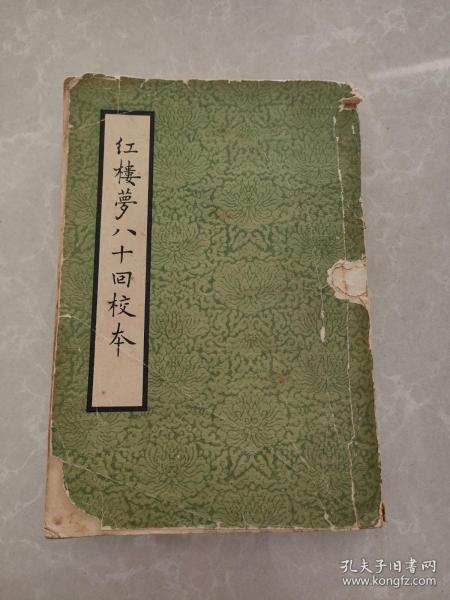 红楼夢八十回校本
孔夫子旧书网
www.kongfz.com